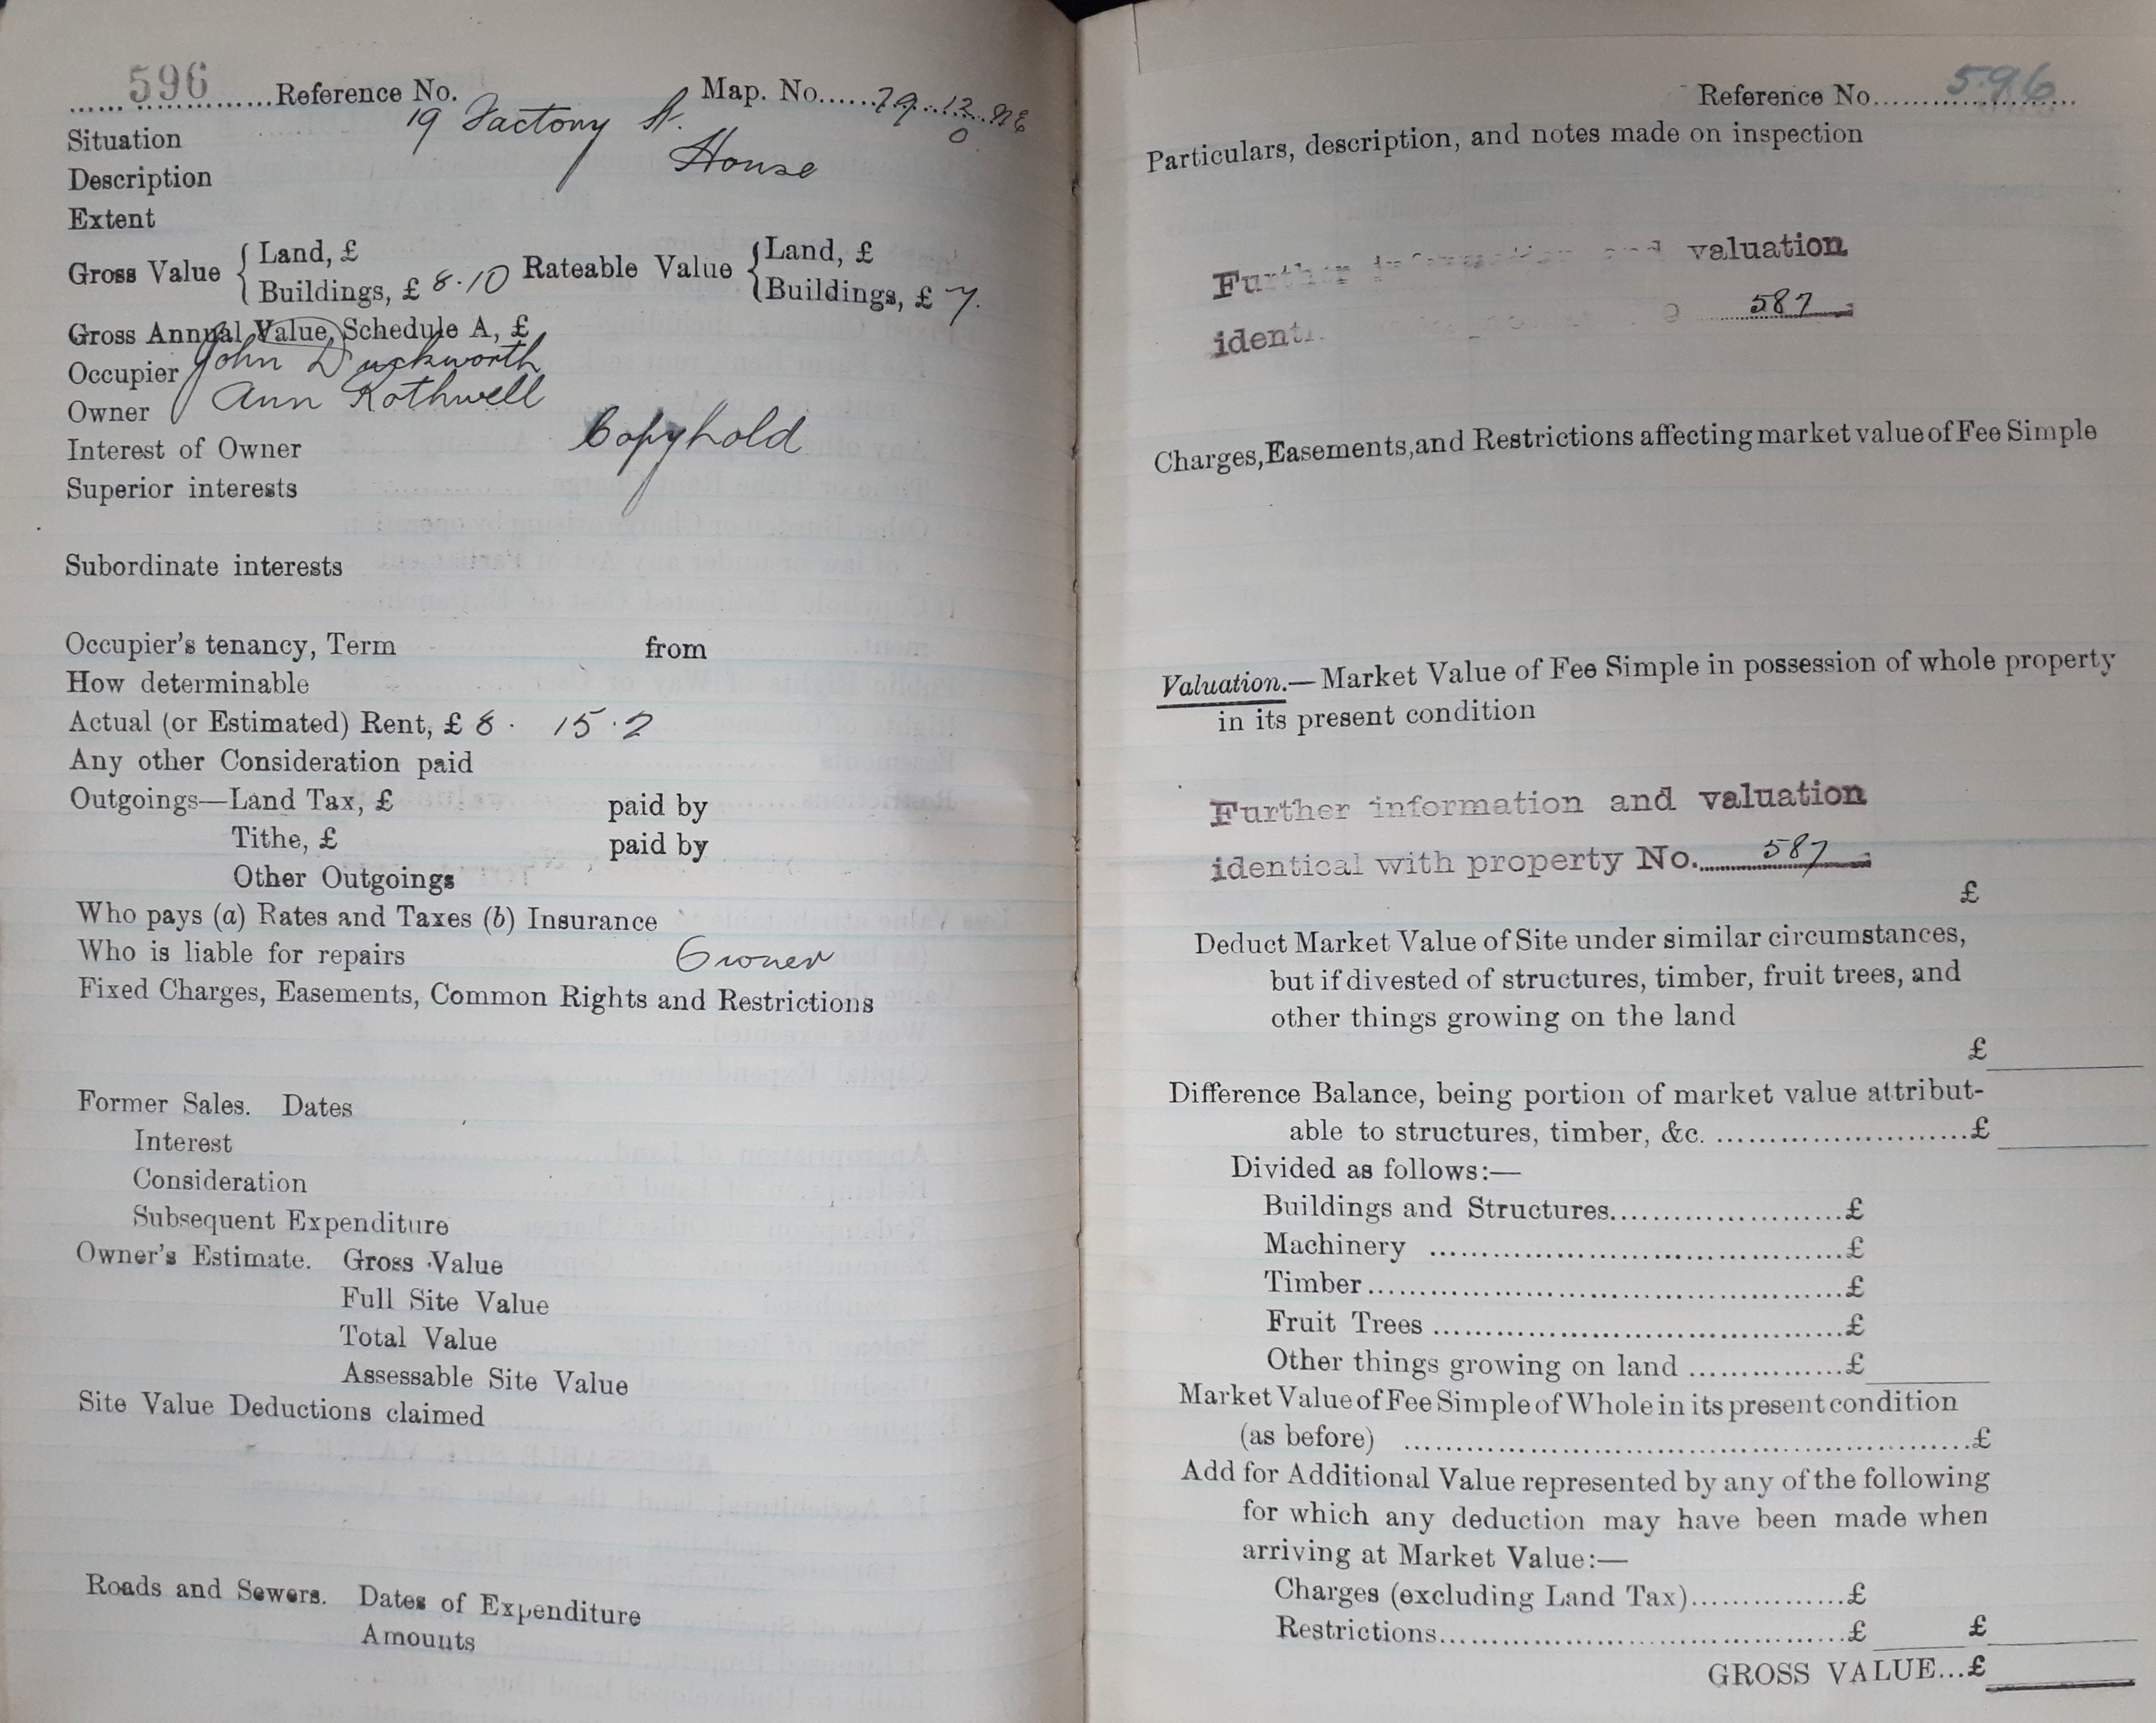 596 Reference No. Map. No. 79.12.NE
0
Situation 19 Factory St.
Description House
Extent
Gross Value { Land, £ Rateable Value { Land, £
Buildings, £ 8.10 Buildings, £ 7.
Gross Annual Value, Schedule A, £
Occupier John Duckworth
Owner Ann Rothwell
Interest of Owner Copyhold
Superior interests
Subordinate interests
Occupier's tenancy, Term from
How determinable
Actual (or Estimated) Rent, £ 8. 15.2
Any other Consideration paid
Outgoings—Land Tax, £ paid by
Tithe, £ paid by
Other Outgoings
Who pays (a) Rates and Taxes (b) Insurance
Who is liable for repairs Owner
Fixed Charges, Easements, Common Rights and Restrictions
Former Sales. Dates
Interest
Consideration
Subsequent Expenditure
Owner's Estimate. Gross Value
Full Site Value
Total Value
Assessable Site Value
Site Value Deductions claimed
Roads and Sewers. Dates of Expenditure
Amounts
Reference No. 596
Particulars, description, and notes made on inspection
Further information and valuation
587
Charges, Easements, and Restrictions affecting market value of Fee Simple
Valuation.—Market Value of Fee Simple in possession of whole property
in its present condition
Further information and valuation
identical with property No. 587
£
Deduct Market Value of Site under similar circumstances,
but if divested of structures, timber, fruit trees, and
other things growing on the land
£
Difference Balance, being portion of market value attribut-
able to structures, timber, &c. £
Divided as follows:—
Buildings and Structures £
Machinery £
Timber £
Fruit Trees £
Other things growing on land £
Market Value of Fee Simple of Whole in its present condition
(as before) £
Add for Additional Value represented by any of the following
for which any deduction may have been made when
arriving at Market Value:—
Charges (excluding Land Tax) £
Restrictions £ £
GROSS VALUE... £